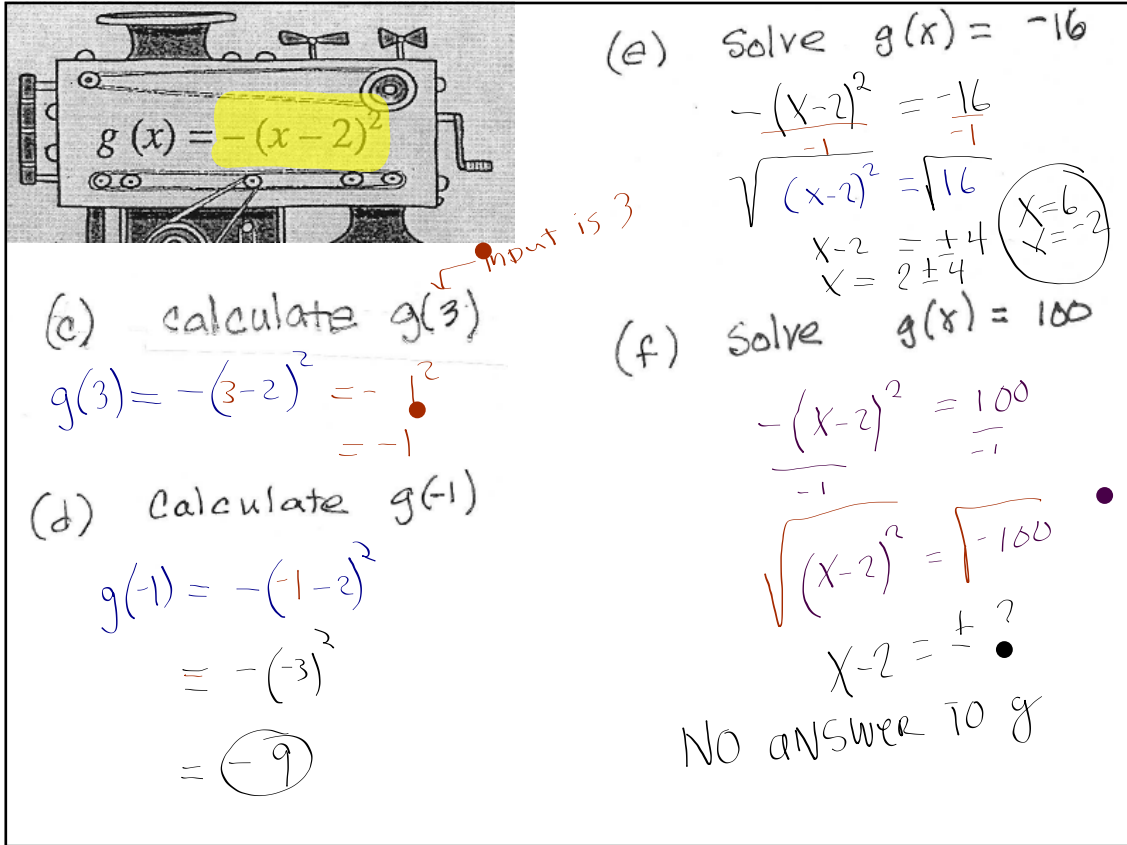 g (x) = -(x - 2)²
input is 3
(c) calculate g(3)
g(3) = -(3-2)² = - 1²
= -1
(d) Calculate g(-1)
g(-1) = -(-1-2)²
= -(-3)²
= -9
(e) Solve g(x) = -16
-(x-2)² = -16
-1 -1
√(x-2)² = √16
x-2 = ±4
x = 2±4
x=6
x=-2
(f) Solve g(x) = 100
-(x-2)² = 100
-1 -1
√(x-2)² = √-100
x-2 = ± ?
NO ANSWER TO g